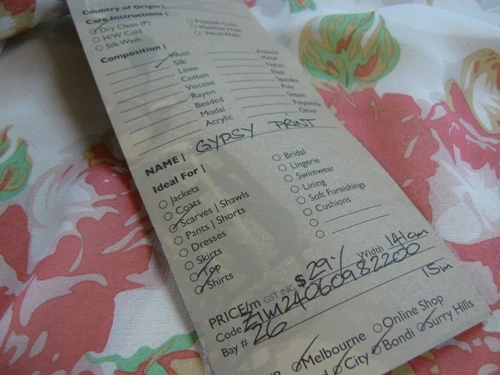 Country of Origin |
Care Instructions |
Dry Clean (P)
H/W Cold
Silk Wash
Composition |
Wool
Silk
Linen
Cotton
Viscose
Rayon
Beaded
Modal
Acrylic
Nylon
Other
NAME | GYPSY PRINT
Ideal For |
Jackets
Coats
Scarves | Shawls
Pants | Shorts
Dresses
Skirts
Top
Shirts
Bridal
Lingerie
Swimwear
Lining
Soft Furnishings
Cushions
PRICE/m GST INC $29.- Width 141cm
Code ZIM24060982200
Bay # 26 15m
Melbourne Online Shop
City Bondi Surry Hills